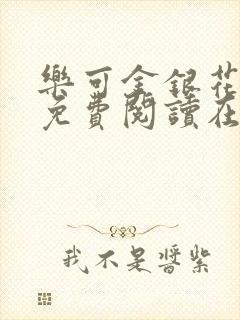 樂可金銀花
免費閱讀在
我不是醬紫